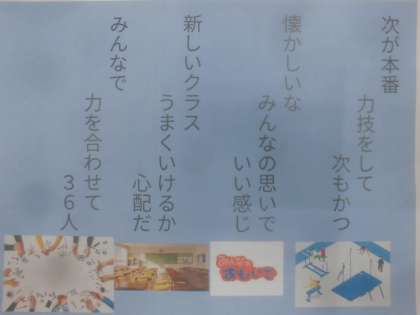 次が本番
力技をして
次もかつ
懐かしいな
みんなの思いで
いい感じ
新しいクラス
うまくいけるか
心配だ
みんなで
力を合わせて
36人
みんなの
おもいで